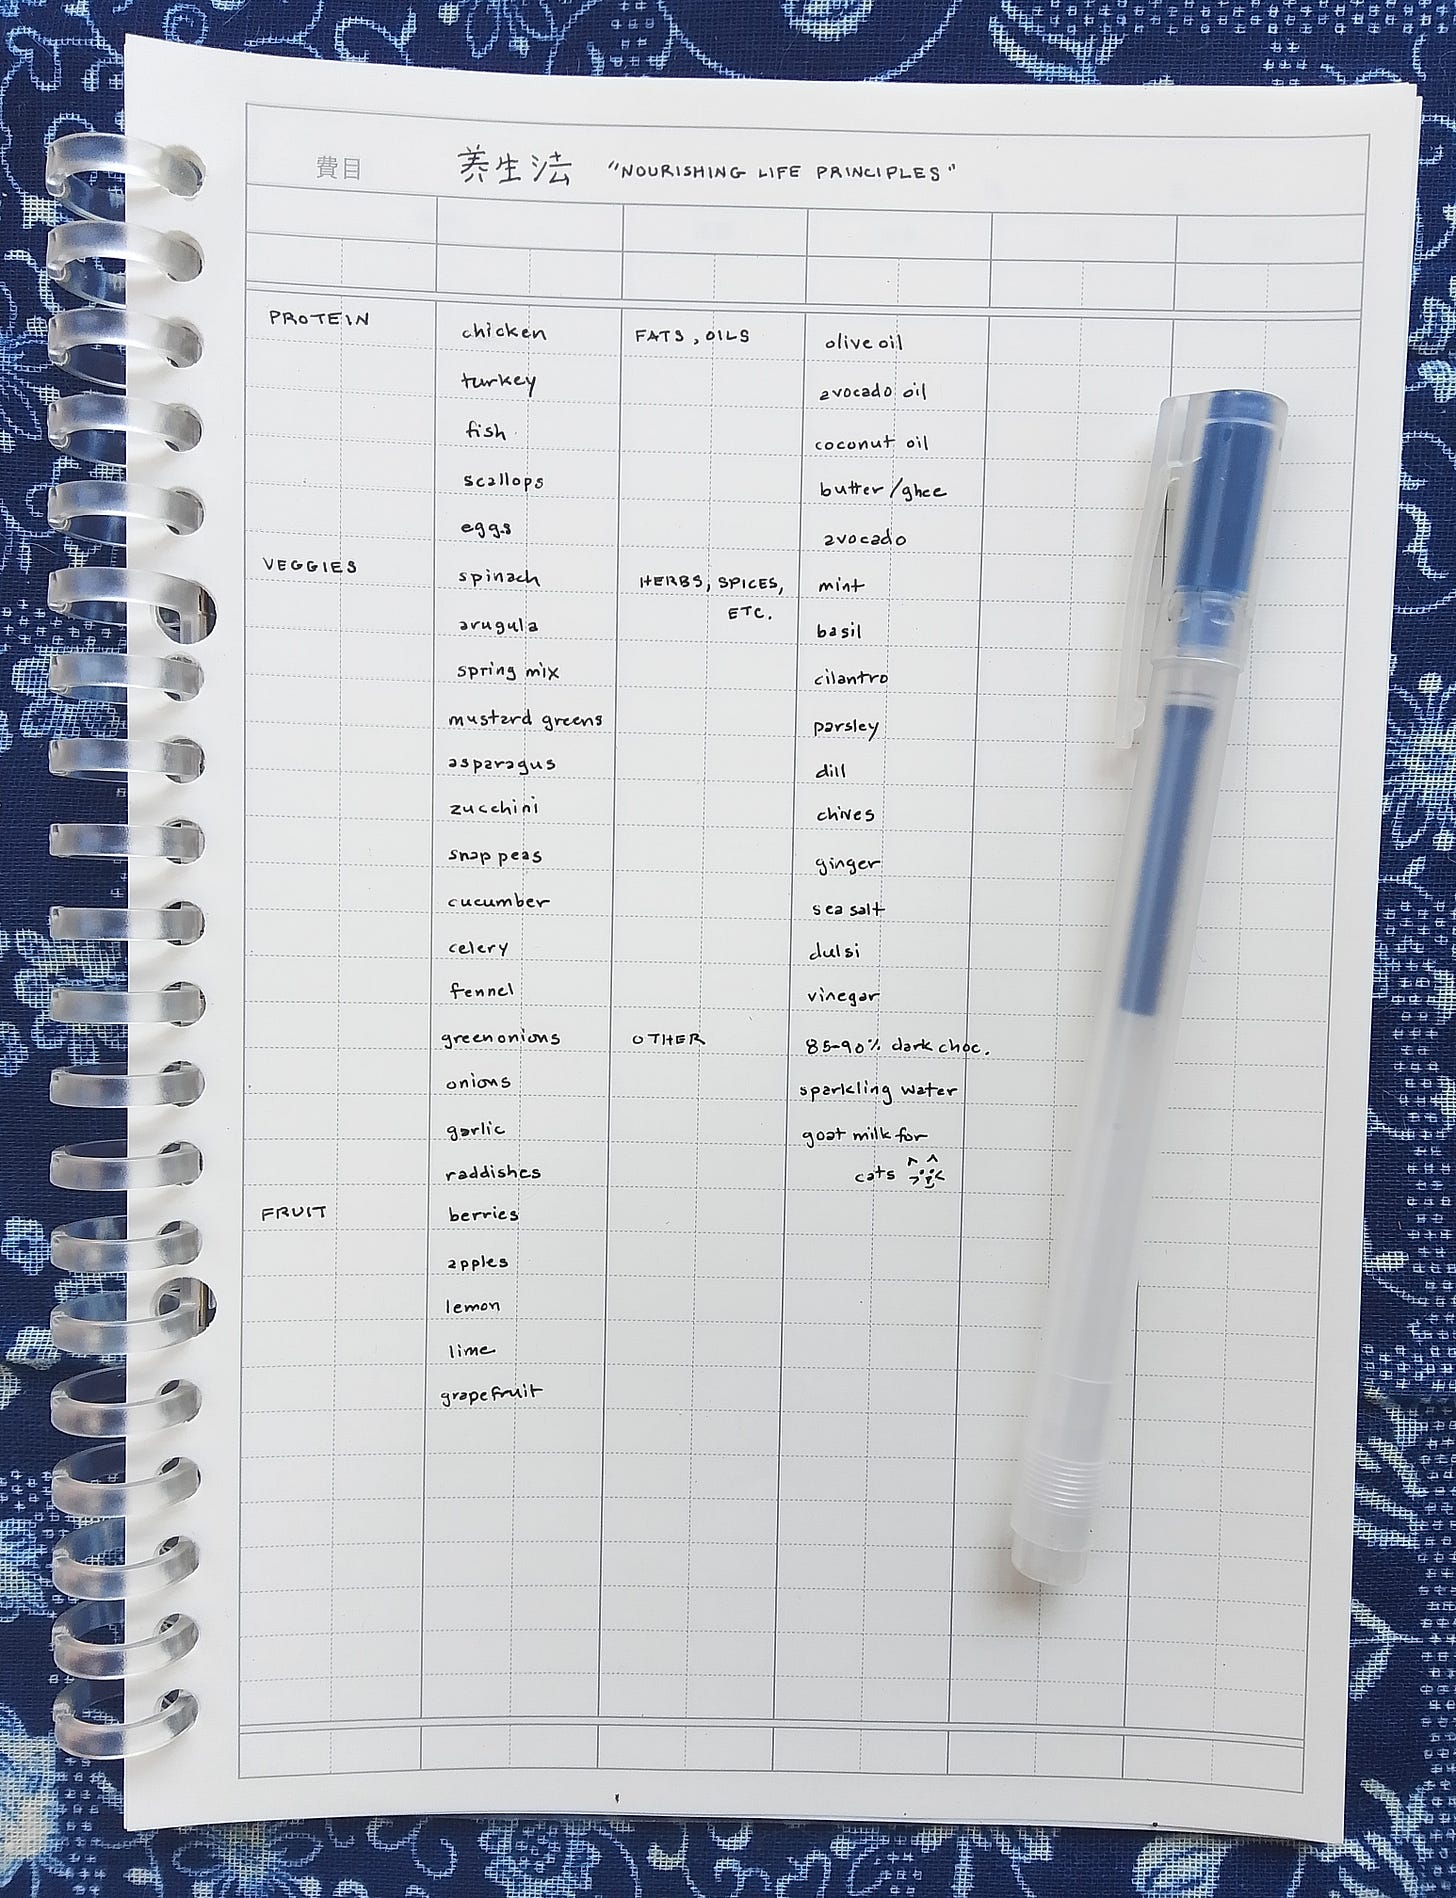 費目
养生法 "NOURISHING LIFE PRINCIPLES"
PROTEIN
chicken
turkey
fish
scallops
eggs
VEGGIES
spinach
arugula
spring mix
mustard greens
asparagus
zucchini
snap peas
cucumber
celery
fennel
green onions
onions
garlic
raddishes
FRUIT
berries
apples
lemon
lime
grapefruit
FATS, OILS
olive oil
avocado oil
coconut oil
butter/ghee
avocado
HERBS, SPICES,
ETC.
mint
basil
cilantro
parsley
dill
chives
ginger
sea salt
dulsi
vinegar
OTHER
85-90% dark choc.
sparkling water
goat milk for
cats